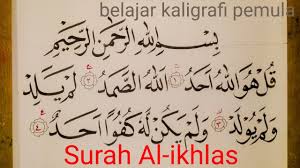 belajar kaligrafi pemula
بِسْمِ اللهِ الرَّحْمٰنِ الرَّحِيْمِ
قُلْ هُوَ اللهُ أَحَدٌ ١ اَللهُ الصَّمَدُ ٢ لَمْ يَلِدْ
وَلَمْ يُوْلَدْ ٣ وَلَمْ يَكُنْ لَهُ كُفُوًا أَحَدٌ ٤
Surah Al-ikhlas